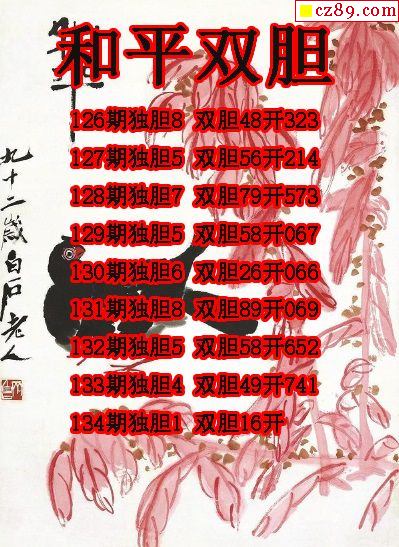 cz89.com
和平
和平双胆
126期独胆8 双胆48开323
127期独胆5 双胆56开214
128期独胆7 双胆79开573
129期独胆5 双胆58开067
130期独胆6 双胆26开066
131期独胆8 双胆89开069
132期独胆5 双胆58开652
133期独胆4 双胆49开741
134期独胆1 双胆16开
九十二岁白石老人